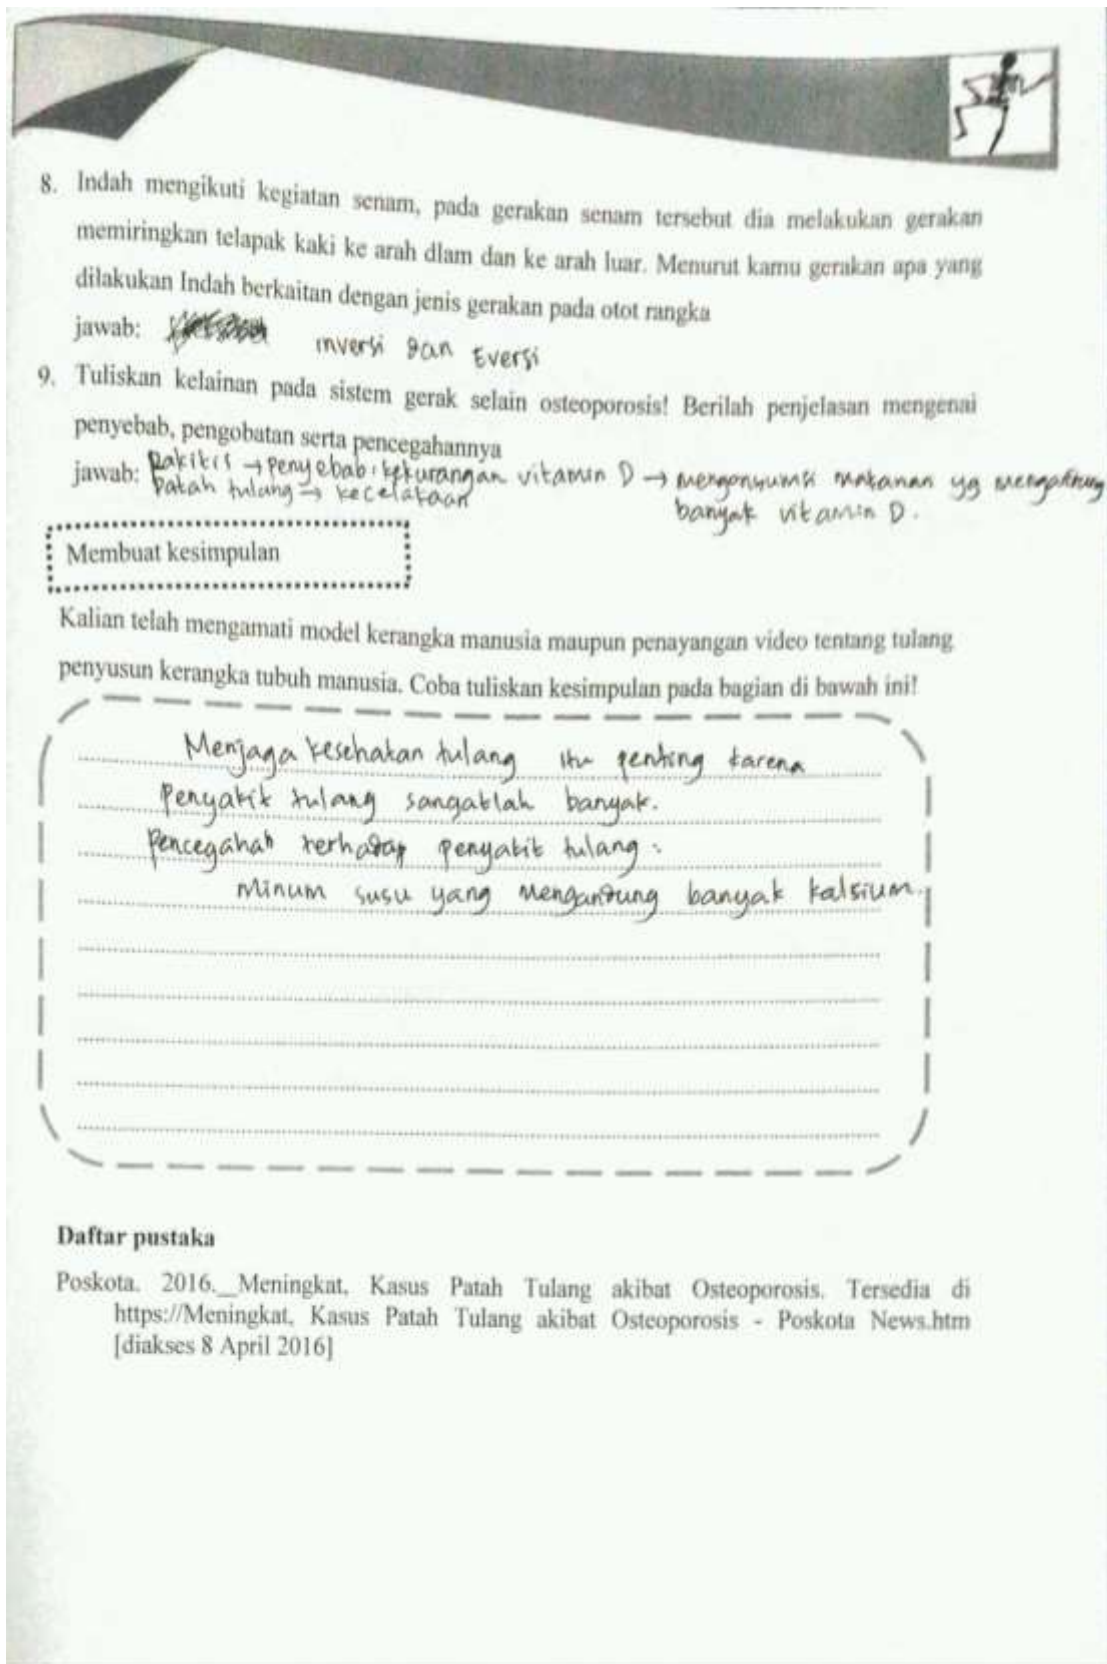 8. Indah mengikuti kegiatan senam, pada gerakan senam tersebut dia melakukan gerakan
memiringkan telapak kaki ke arah dlam dan ke arah luar. Menurut kamu gerakan apa yang
dilakukan Indah berkaitan dengan jenis gerakan pada otot rangka
jawab: inversi dan Eversi
9. Tuliskan kelainan pada sistem gerak selain osteoporosis! Berilah penjelasan mengenai
penyebab, pengobatan serta pencegahannya
jawab: Rakitis → penyebab: kekurangan vitamin D → mengonsumsi makanan yg mengandung
patah tulang → kecelakaan banyak vitamin D.
Membuat kesimpulan
Kalian telah mengamati model kerangka manusia maupun penayangan video tentang tulang
penyusun kerangka tubuh manusia. Coba tuliskan kesimpulan pada bagian di bawah ini!
Menjaga kesehatan tulang itu penting karena
penyakit tulang sangatlah banyak.
Pencegahan terhadap penyakit tulang:
Minum susu yang mengandung banyak kalsium.
Daftar pustaka
Poskota. 2016._Meningkat, Kasus Patah Tulang akibat Osteoporosis. Tersedia di
https://Meningkat, Kasus Patah Tulang akibat Osteoporosis - Poskota News.htm
[diakses 8 April 2016]